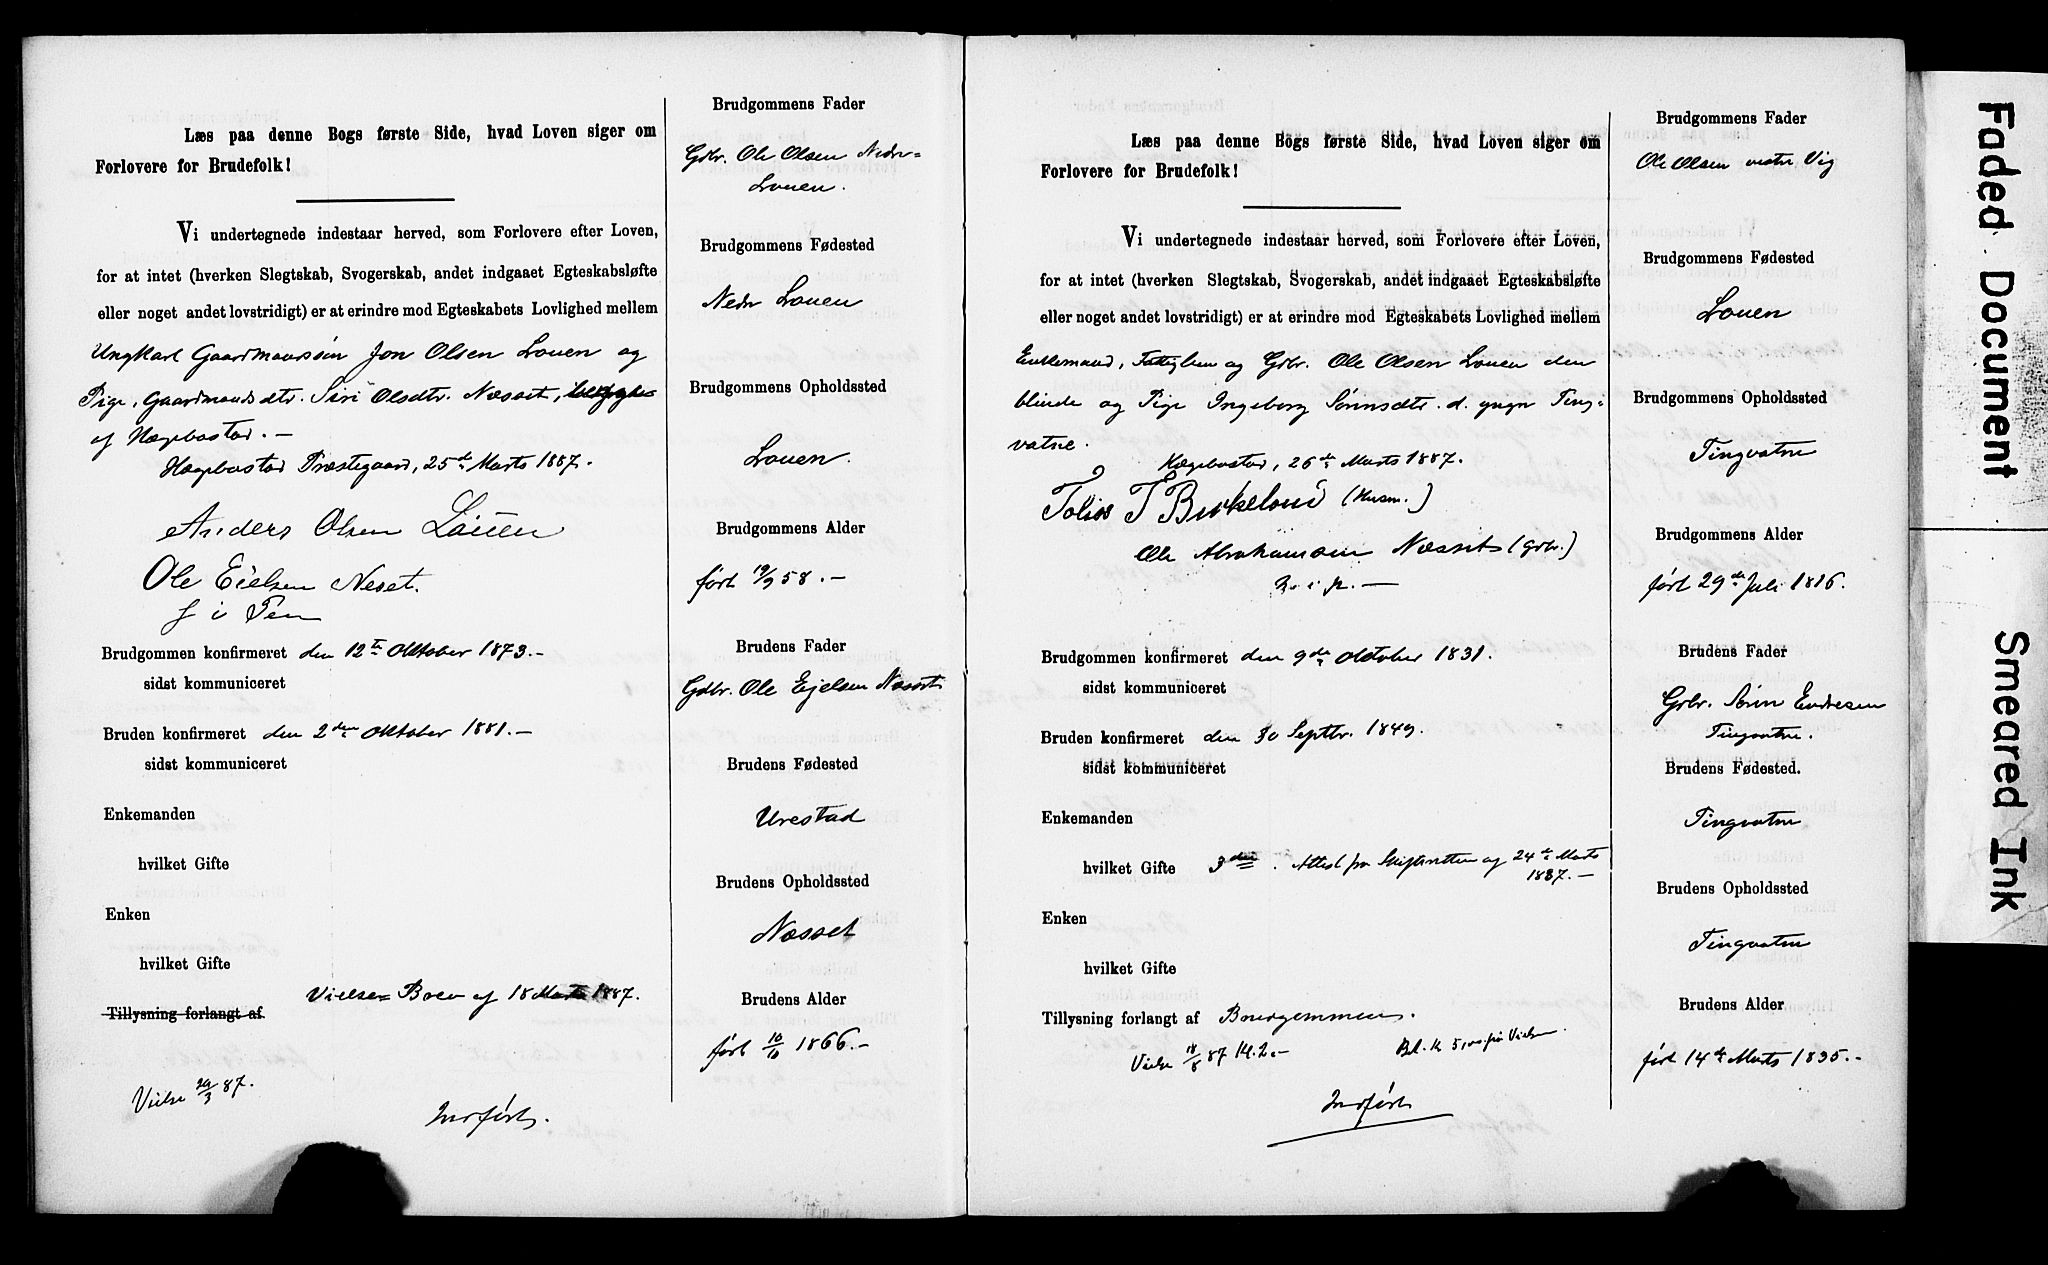 Læs paa denne Bogs første Side, hvad Loven siger om
Forlovere for Brudefolk!
Vi undertegnede indestaar herved, som Forlovere efter Loven,
for at intet (hverken Slegtskab, Svogerskab, andet indgaaet Egteskabsløfte
eller noget andet lovstridigt) er at erindre mod Egteskabets Lovlighed mellem
Ungkarl Gaardmandssøn Jon Olsen Louen og
Pige, Gaardmandsdtr. Siri Olsdtr. Næsset,
af Hægebostad. —
Hægebostad Præstegaard, 25de Marts 1887.
Anders Olsen Louen
Ole Eielsen Neset.
J i Pen
Brudgommen konfirmeret den 12te Oktober 1873. —
sidst kommuniceret
Bruden konfirmeret den 2den Oktober 1881. —
sidst kommuniceret
Enkemanden
hvilket Gifte
Enken
hvilket Gifte
Vielses Brev af 18 Marts 1887.
Tillysning forlangt af
Vielse 29/3 87.
Indført.
Brudgommens Fader
Gdbr. Ole Olsen Nedre=
Louen.
Brudgommens Fødested
Nedr Louen
Brudgommens Opholdssted
Louen.
Brudgommens Alder
født 19/9 58. —
Brudens Fader
Gdbr. Ole Ejelsen Næsset
Brudens Fødested
Urestad
Brudens Opholdssted
Næsset
Brudens Alder
født 16/10 1866. —
Læs paa denne Bogs første Side, hvad Loven siger om
Forlovere for Brudefolk!
Vi undertegnede indestaar herved, som Forlovere efter Loven,
for at intet (hverken Slegtskab, Svogerskab, andet indgaaet Egteskabsløfte
eller noget andet lovstridigt) er at erindre mod Egteskabets Lovlighed mellem
Enkemand, Fattiglem og Gdbr. Ole Olsen Louen den
blinde og Pige Ingeborg Sørensdtr. d. yngr Ting=
vatne.
Hægebostad, 26de Marts 1887.
Tolius T Birkeland (Husm.)
Ole Abrahamsen Næsset (Gdbr.)
m. i p. —
Brudgommen konfirmeret den 9de Oktober 1831.
sidst kommuniceret
Bruden konfirmeret den 30 Septbr. 1849.
sidst kommuniceret
Enkemanden
hvilket Gifte 3die. Attest fra Skifteretten af 24de Marts
1887. —
Enken
hvilket Gifte
Tillysning forlangt af Brudgommen.
Vielse 18/8 87 Kl. 2. — Bet. K 5,00 for Vielsen.
Indført
Brudgommens Fader
Ole Olsen vestre Vig
Brudgommens Fødested
Louen
Brudgommens Opholdssted
Tingvatne
Brudgommens Alder
født 29de Juli 1816.
Brudens Fader
Gdbr. Søren Endresen
Tingvatne.
Brudens Fødested.
Tingvatne
Brudens Opholdssted
Tingvatne
Brudens Alder
født 14de Marts 1835. —
Faded Document
Smeared Ink